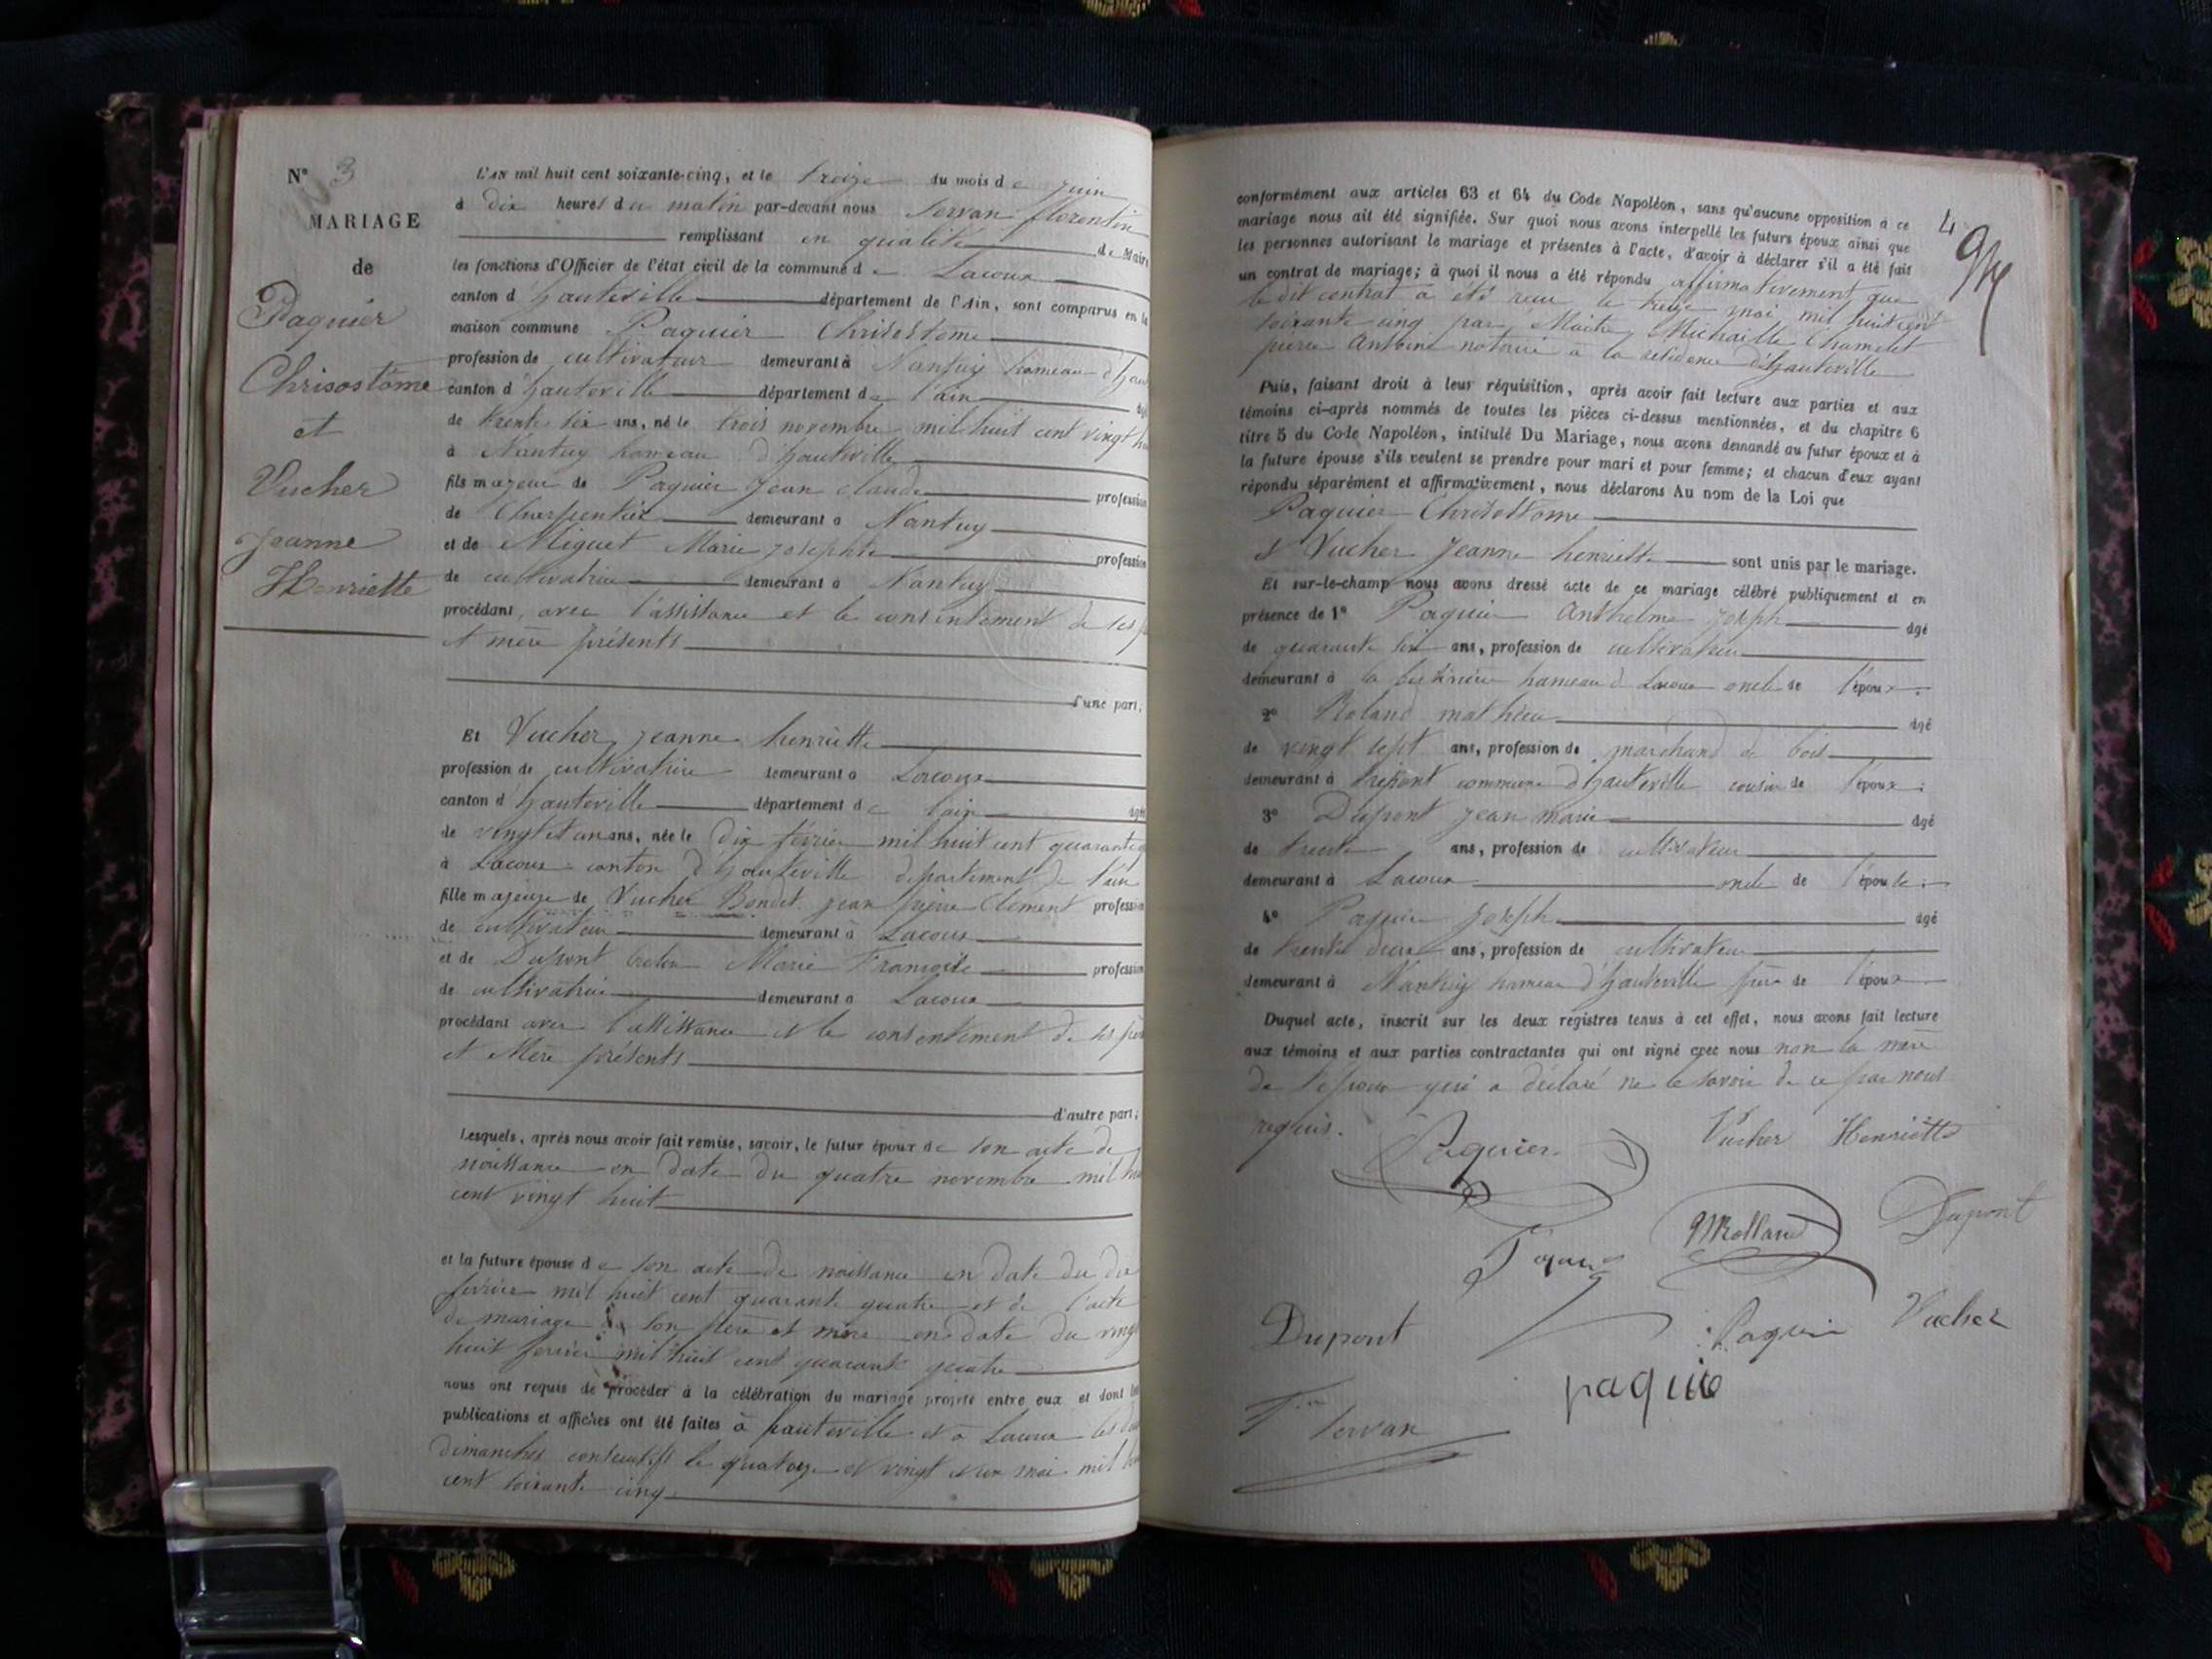 N° 3
MARIAGE
de
Paquier
Chrisostôme
et
Vucher
Jeanne
Henriette
L'AN mil huit cent soixante-cinq, et le treize du mois de juin
à dix heures du matin par-devant nous Servan florentin
remplissant en qualité de Maire
les fonctions d'Officier de l'état civil de la commune de Lacoux
canton d'hauteville département de l'Ain, sont comparus en la
maison commune Paquier Chrisostome
profession de cultivateur demeurant à Nantuy hameau d'hau
canton d'hauteville département de l'ain âgé
de trente six ans, né le trois novembre mil huit cent vingt hu
à Nantuy hameau d'hauteville
fils majeur de Paquier Jean claude profession
de Charpentier demeurant à Nantuy
et de Miguet Marie josephte profession
de cultivatrice demeurant à Nantuy
procédant, avec l'assistance et le consentement de ses p
et mère présents
d'une part,
Et Vucher jeanne henriette
profession de cultivatrice demeurant à Lacoux
canton d'hauteville département de l'ain âgée
de vingt et un ans, née le dix février mil huit cent quarante q
à Lacoux canton d'hauteville département de l'ain
fille majeure de Vucher Bondet jean pierre Clément profession
de cultivateur demeurant à Lacoux
et de Dupont Marie Françoise profession
de cultivatrice demeurant à Lacoux
procédant avec l'assistance et le consentement de ses père
et Mère présents
d'autre part;
Lesquels, après nous avoir fait remise, savoir, le futur époux de son acte de
naissance en date du quatre novembre mil hu
cent vingt huit
et la future épouse de son acte de naissance en date du dix
février mil huit cent quarante quatre et de l'acte
de mariage de son père et mère en date du vingt
huit février mil huit cent quarante quatre
nous ont requis de procéder à la célébration du mariage projeté entre eux et dont les
publications et affiches ont été faites à hauteville et à Lacoux les deux
dimanches consécutifs le quatorze et vingt et un mai mil huit
cent soixante cinq
4
conformément aux articles 63 et 64 du Code Napoléon, sans qu'aucune opposition à ce
mariage nous ait été signifiée. Sur quoi nous avons interpellé les futurs époux ainsi que
les personnes autorisant le mariage et présentes à l'acte, d'avoir à déclarer s'il a été fait
un contrat de mariage; à quoi il nous a été répondu affirmativement que
le dit contrat a été reçu le treize mai mil huit cent
soixante cinq par Maître Michaille Chamelet
pierre Antoine notaire à la résidence d'hauteville
Puis, faisant droit à leur réquisition, après avoir fait lecture aux parties et aux
témoins ci-après nommés de toutes les pièces ci-dessus mentionnées, et du chapitre 6
titre 5 du Code Napoléon, intitulé Du Mariage, nous avons demandé au futur époux et à
la future épouse s'ils veulent se prendre pour mari et pour femme; et chacun d'eux ayant
répondu séparément et affirmativement, nous déclarons Au nom de la Loi que
Paquier Chrisostome
et Vucher Jeanne henriette sont unis par le mariage.
Et sur-le-champ nous avons dressé acte de ce mariage célébré publiquement et en
présence de 1° Paquier Anthelme joseph âgé
de quarante six ans, profession de cultivateur
demeurant à la hameau de Lacoux oncle de l'époux;
2° Roland mathieu âgé
de vingt sept ans, profession de marchand de bois
demeurant à trépont commune d'hauteville cousin de l'époux;
3° Dupont jean marie âgé
de trente ans, profession de cultivateur
demeurant à Lacoux oncle de l'épouse;
4° Paquier joseph âgé
de trente deux ans, profession de cultivateur
demeurant à Nantuy hameau d'hauteville frère de l'époux
Duquel acte, inscrit sur les deux registres tenus à cet effet, nous avons fait lecture
aux témoins et aux parties contractantes qui ont signé avec nous non la mère
de l'époux qui a déclaré ne le savoir de ce par nous
requis.
Paquier Vucher Henriette
MRolland Dupont
Dupont Paquier Vucher
paquie
Servan